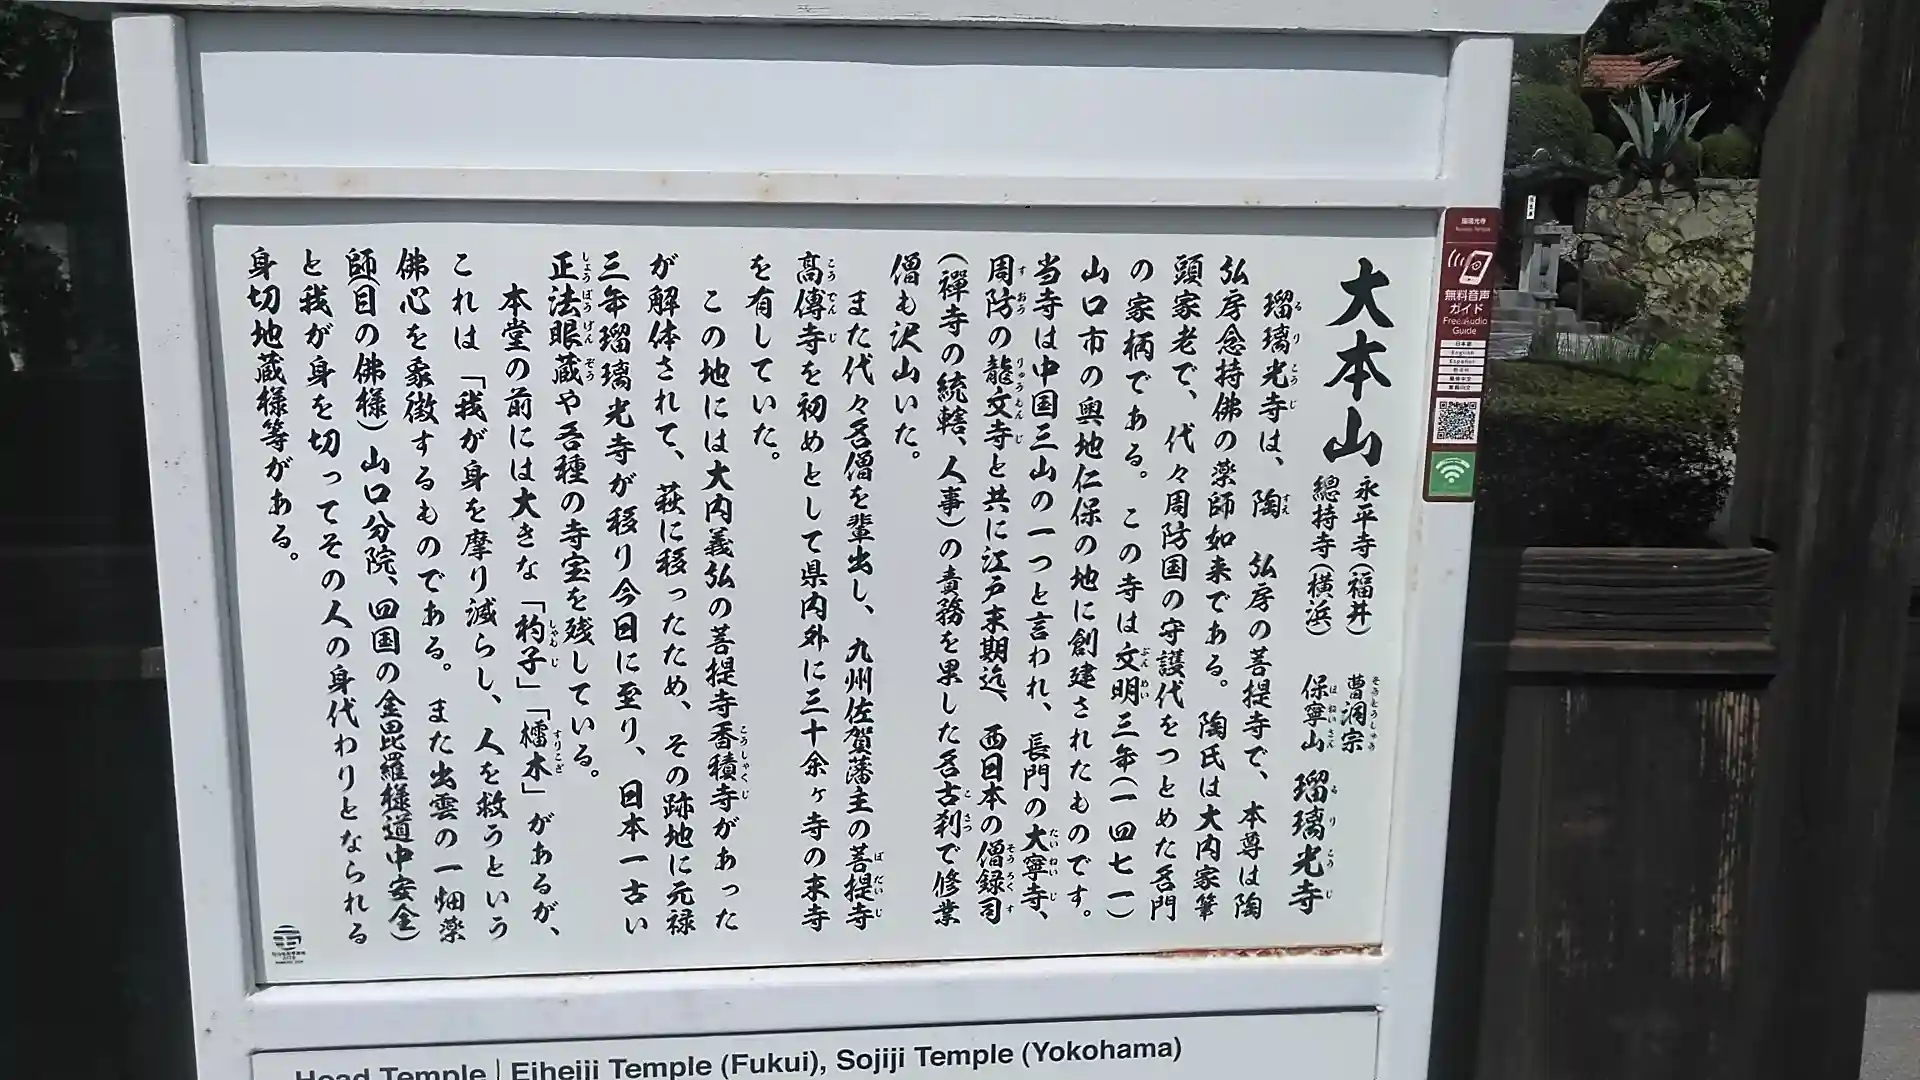 大本山 永平寺(福井) 總持寺(横浜) 曹洞宗 保寧山 瑠璃光寺
瑠璃光寺は、陶 弘房の菩提寺で、本尊は陶
弘房念持佛の薬師如来である。陶氏は大内家筆
頭家老で、代々周防国の守護代をつとめた名門
の家柄である。この寺は文明三年(一四七一)
山口市の奥地仁保の地に創建されたものです。
当寺は中国三山の一つと言われ、長門の大寧寺、
周防の龍文寺と共に江戸末期迄、西日本の僧録司
(禪寺の統轄、人事)の責務を果した名古刹で修業
僧も沢山いた。
また代々名僧を輩出し、九州佐賀藩主の菩提寺
高傳寺を初めとして県内外に三十余ヶ寺の末寺
を有していた。
この地には大内義弘の菩提寺香積寺があった
が解体されて、萩に移ったため、その跡地に元禄
三年瑠璃光寺が移り今日に至り、日本一古い
正法眼蔵や吾種の寺宝を残している。
本堂の前には大きな「杓子」「櫺木」があるが、
これは「我が身を摩り減らし、人を救うという
佛心を象徴するものである。また出雲の一畑薬
師(目の佛様)山口分院、四国の金毘羅様道中安全)
と我が身を切ってその人の身代わりとなられる
身切地蔵様等がある。
瑠璃光寺
無料音声
ガイド
Free Audio
Guide
日本語
English
Español
한국어
Head Temple | Eiheiji Temple (Fukui), Sojiji Temple (Yokohama)